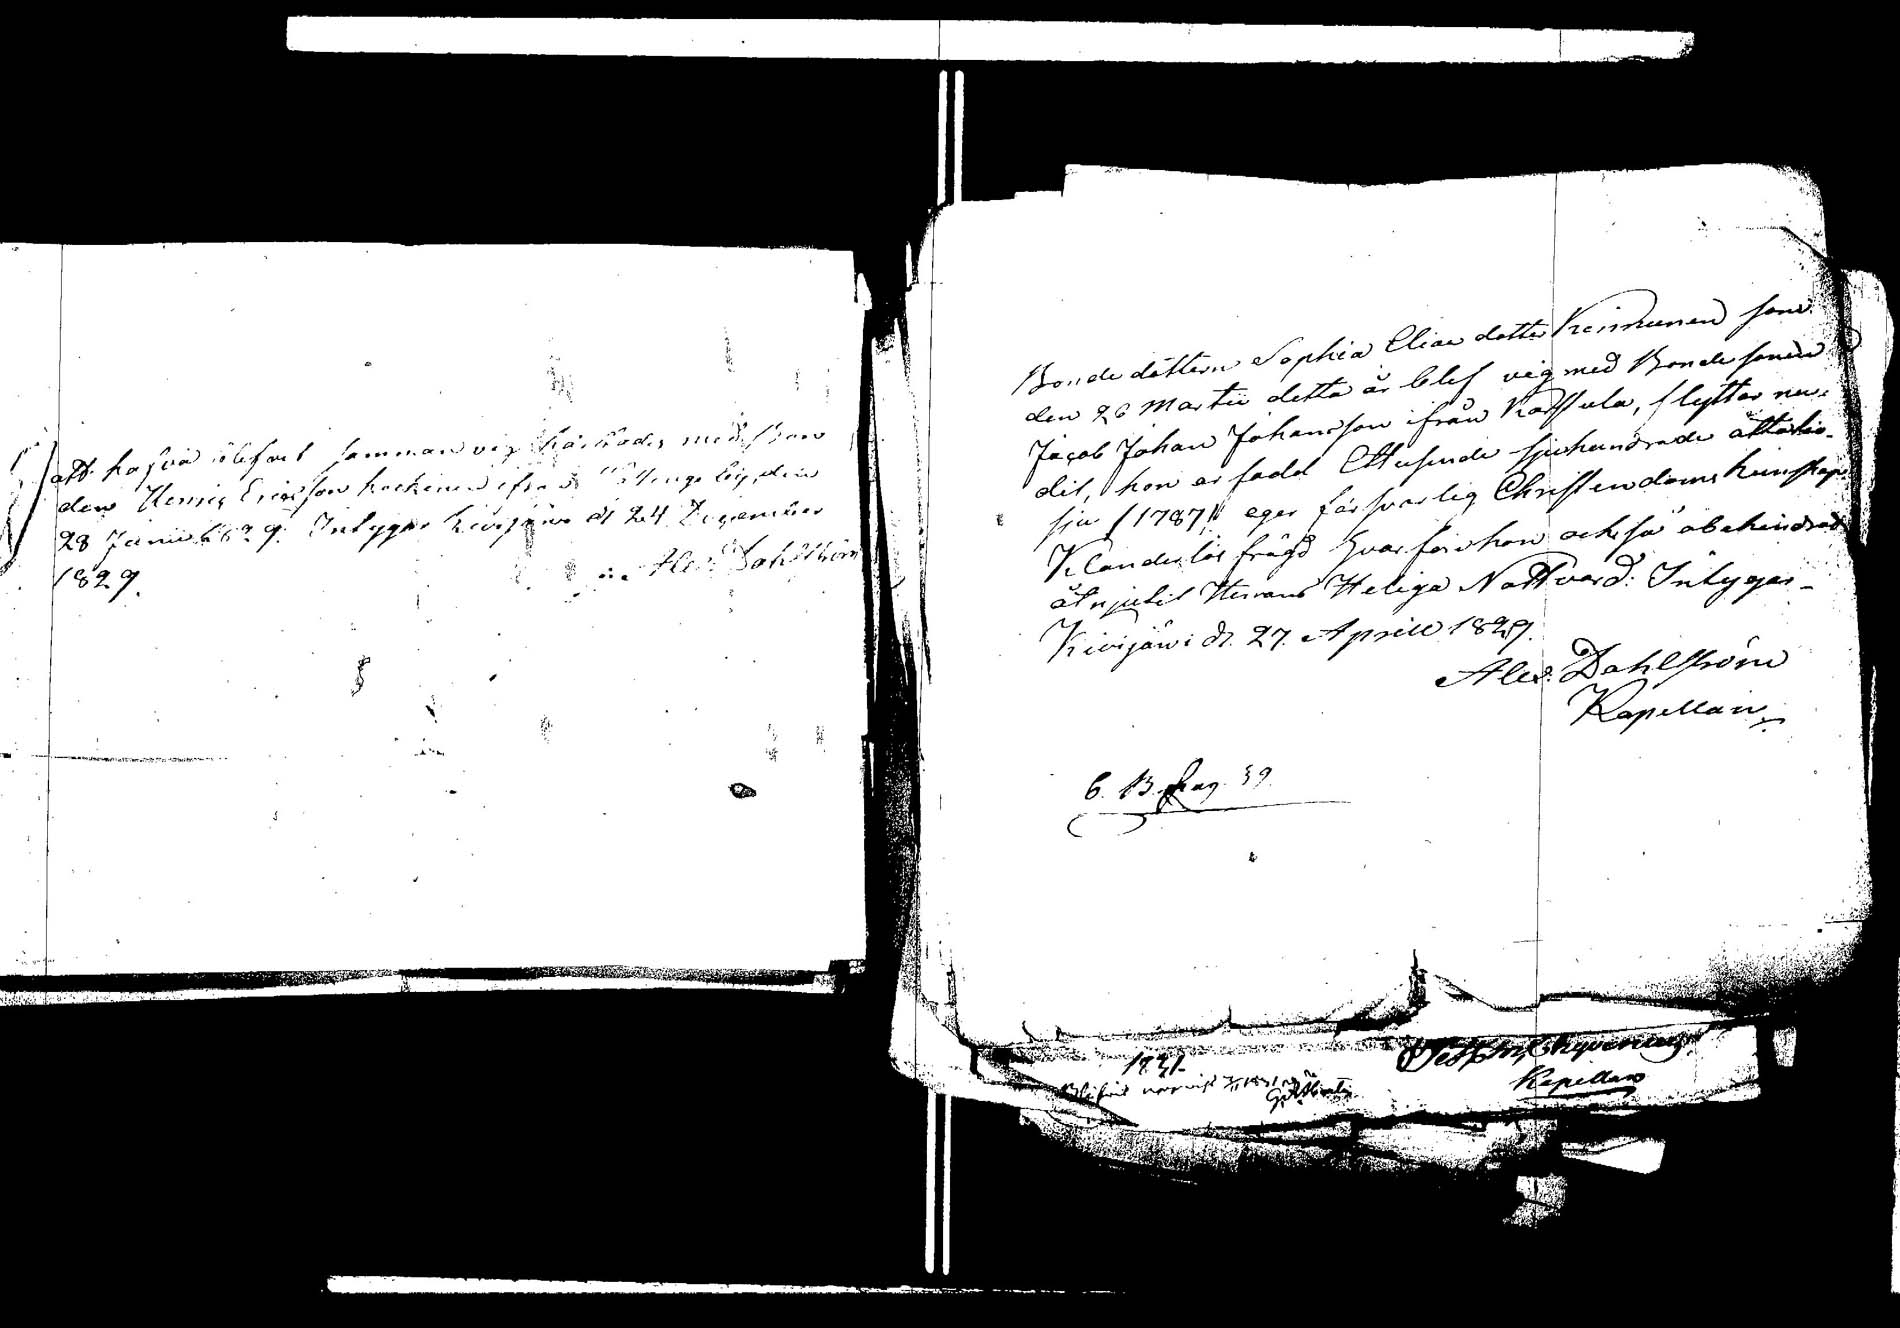 att hafva blifvit samman vigd härstädes med Bon
den Henric Ericsson kockinen ifrån by, den
28 Junii 1829. Intygar Kivijärvi dt 24 December
1829.
Alex. Dahlström
Bonde dottern Sophia Eliae dotter Keinunen som
den 26 Martii detta år blef vigd med Bonde sonen
Jacob Johan Johansson ifrån flyttar nu
dit, hon är född Ettusende sjuhundrade åttatio-
sju (1787), eger försvarlig Christendoms kunskap
Klanderlös frägd hvarföre hon också obehindrad
åtnjutit Herrans Heliga Nattvard: Intygar
Kivijärvi dt. 27. Aprill 1829.
Alex. Dahlström
Kapellan
C. B. pag. 39.
1831.
Kapellan